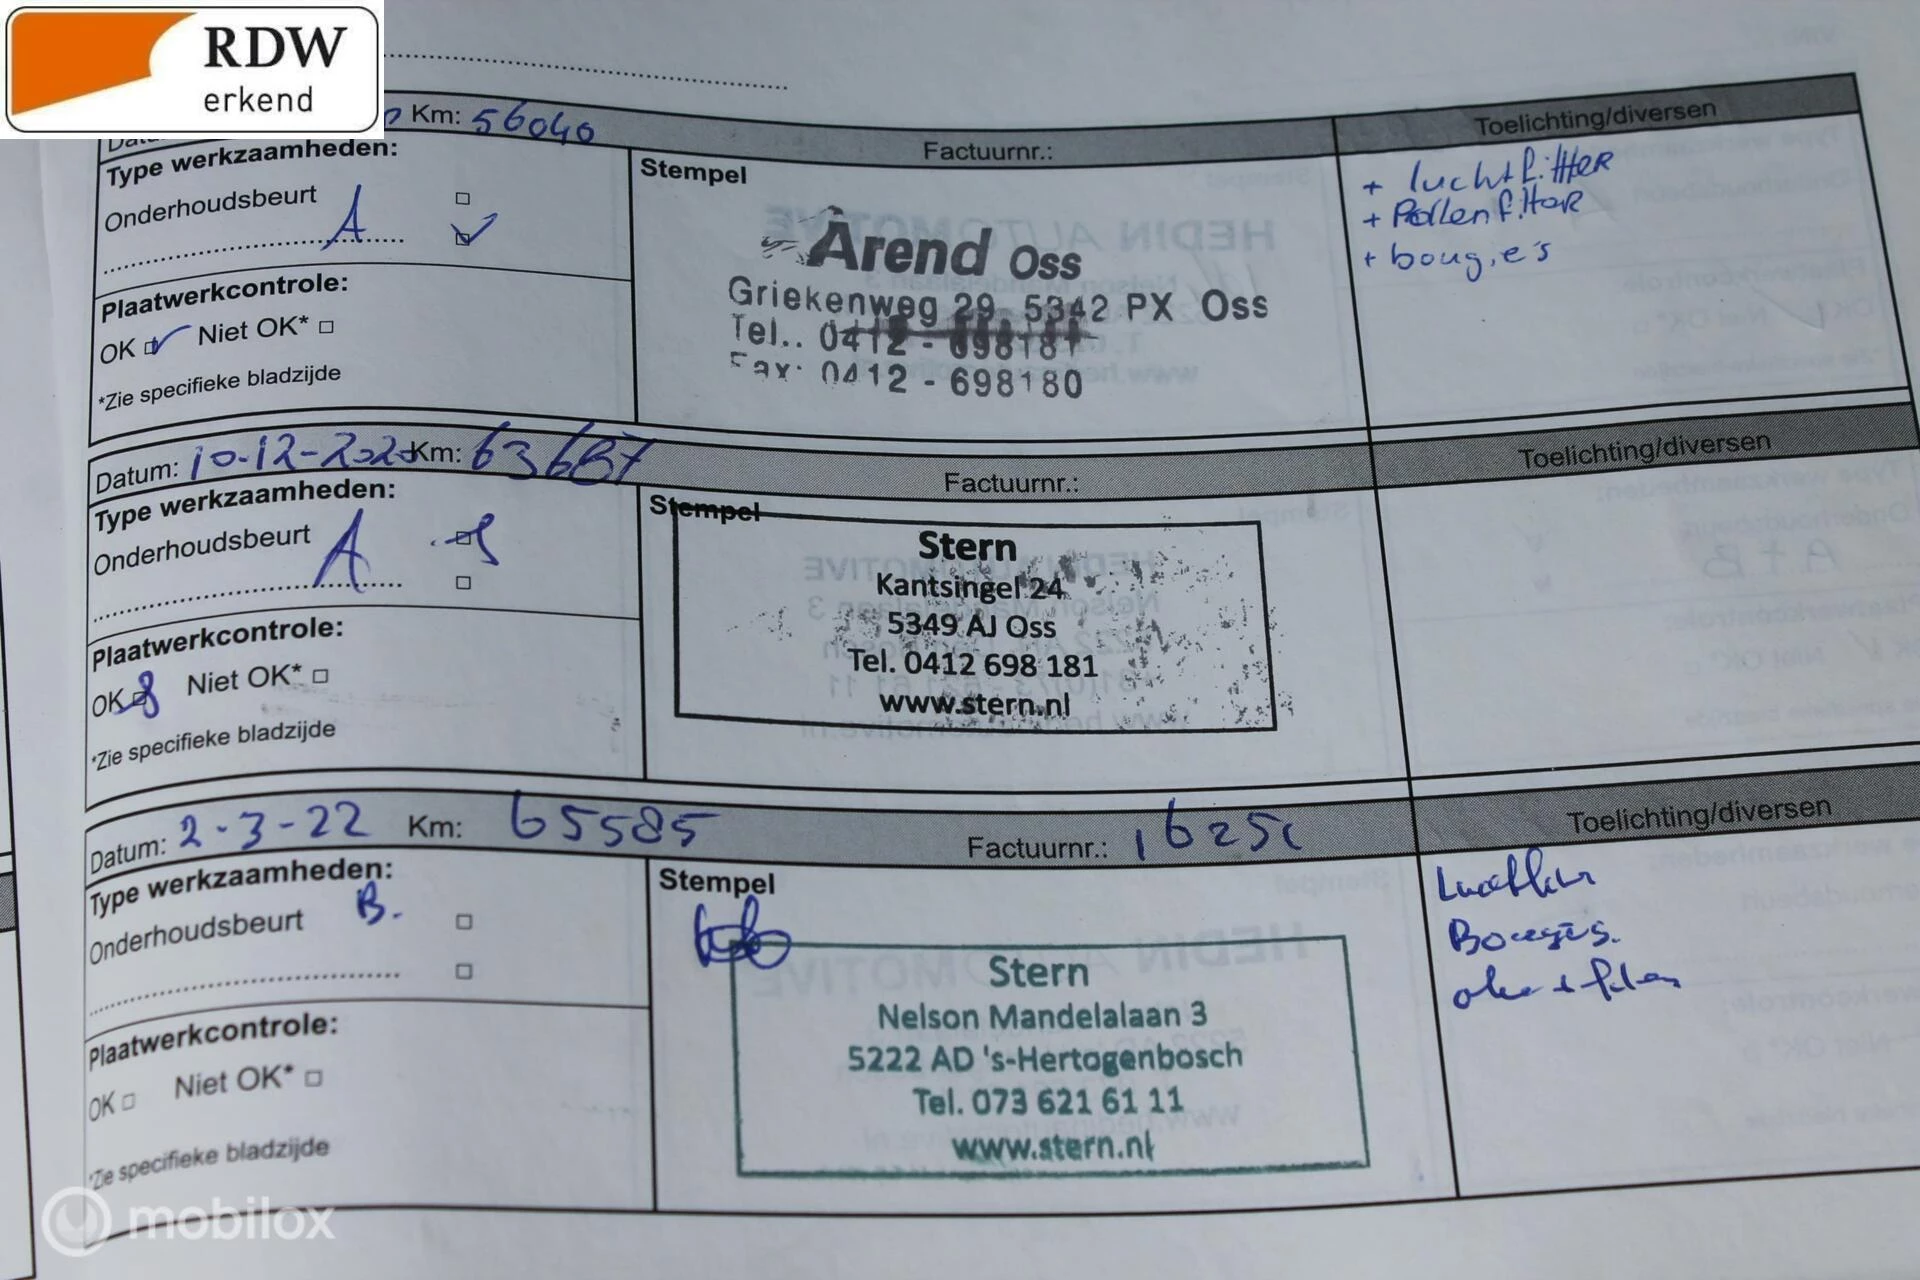 RDW
erkend
Km: 56040
Factuurnr.:
Toelichting/diversen
Type werkzaamheden:
Onderhoudsbeurt
A
Plaatwerkcontrole:
OK Niet OK*
*Zie specifieke bladzijde
Stempel
Arend Oss
Griekenweg 29 5342 PX Oss
Tel.. 0412 - 698181
Fax: 0412 - 698180
+ luchtfilter
+ Pollenfilter
+ bougie's
Datum: 10-12-202 Km: 63687
Factuurnr.:
Toelichting/diversen
Type werkzaamheden:
Onderhoudsbeurt
A
Plaatwerkcontrole:
OK Niet OK*
*Zie specifieke bladzijde
Stempel
Stern
Kantsingel 24
5349 AJ Oss
Tel. 0412 698 181
www.stern.nl
Datum: 2-3-22 Km: 65585
Factuurnr.:
Toelichting/diversen
Type werkzaamheden:
Onderhoudsbeurt B.
Plaatwerkcontrole:
OK Niet OK*
*Zie specifieke bladzijde
Stempel
Stern
Nelson Mandelalaan 3
5222 AD 's-Hertogenbosch
Tel. 073 621 61 11
www.stern.nl
mobilox